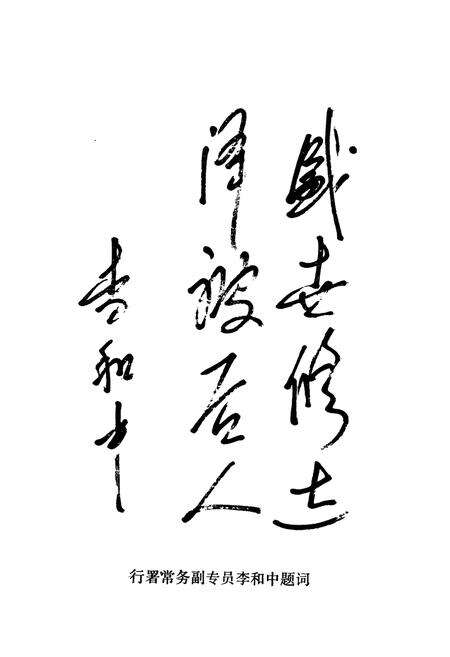 盛世修志
泽被后人
李和中
行署常务副专员李和中题词